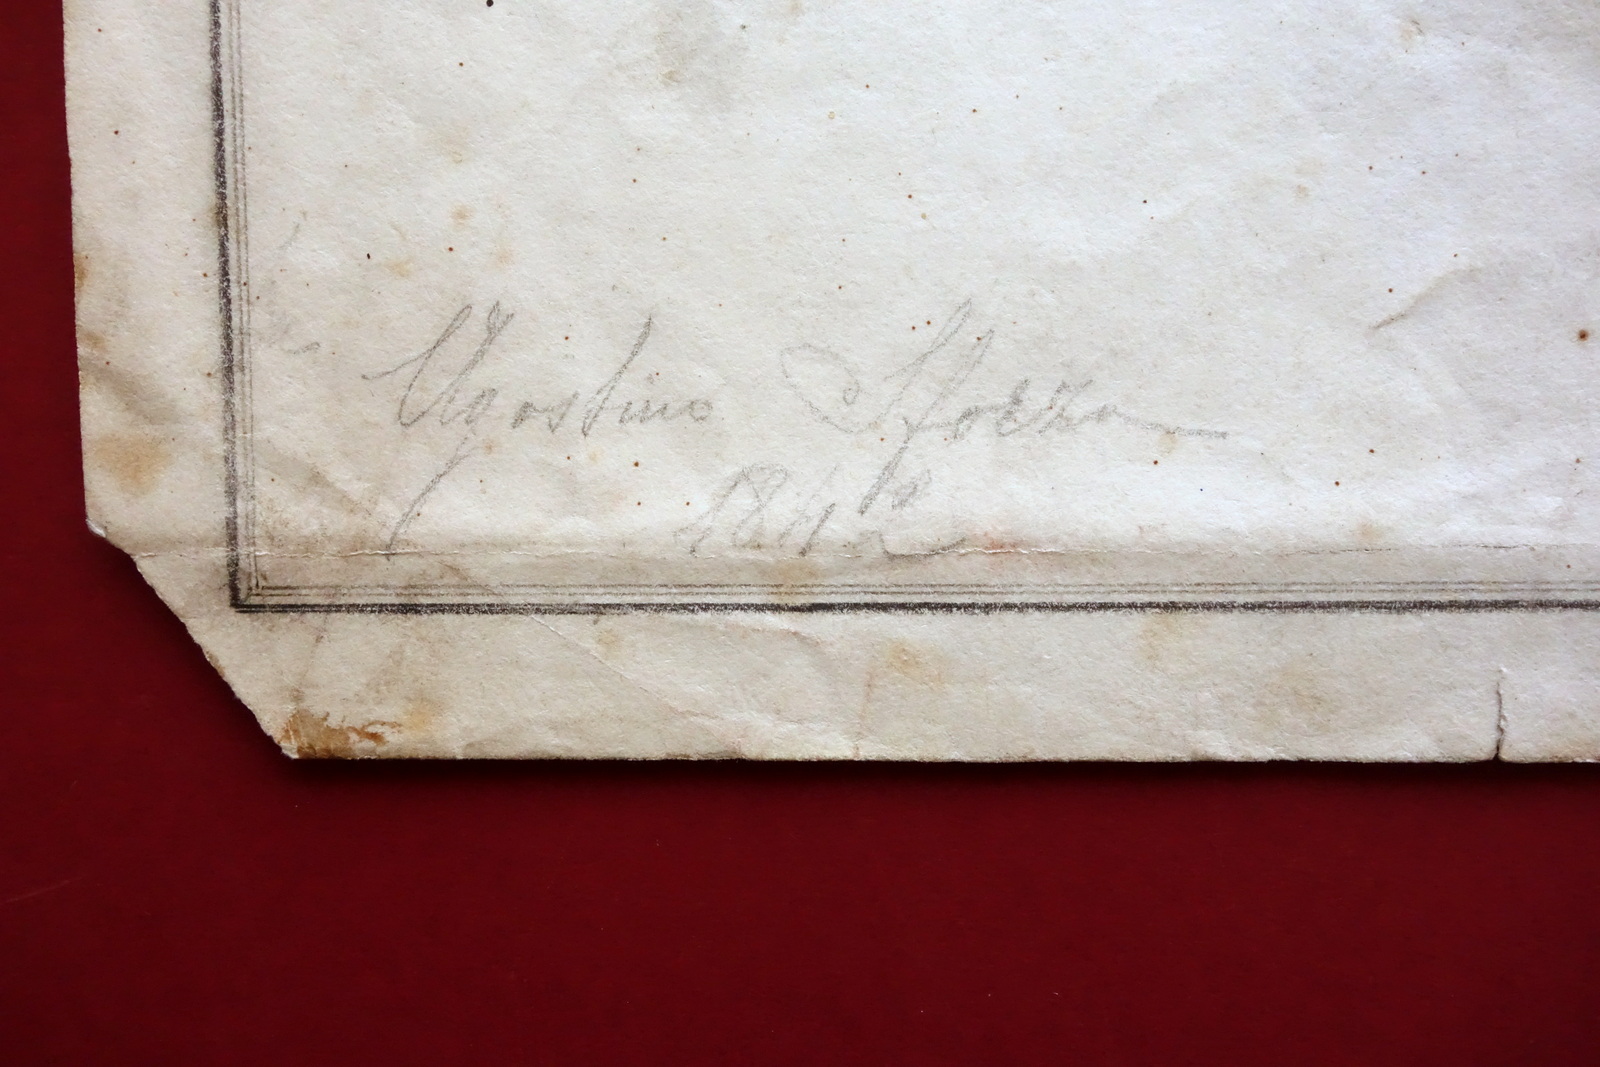 Agostino Sforza
1842